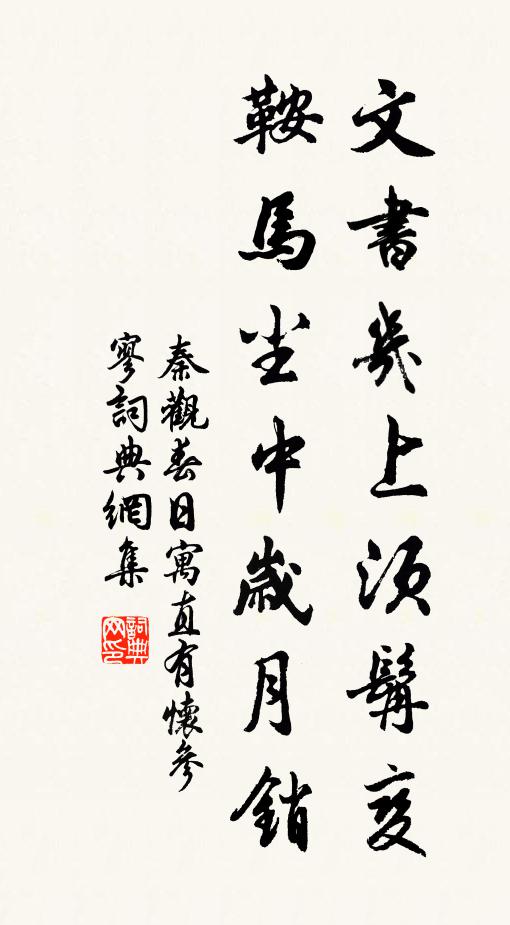 文書几上須髯变
鞍馬塵中歳月銷
秦觀春日寓直有懷參
寥詞典網集
詞典网印